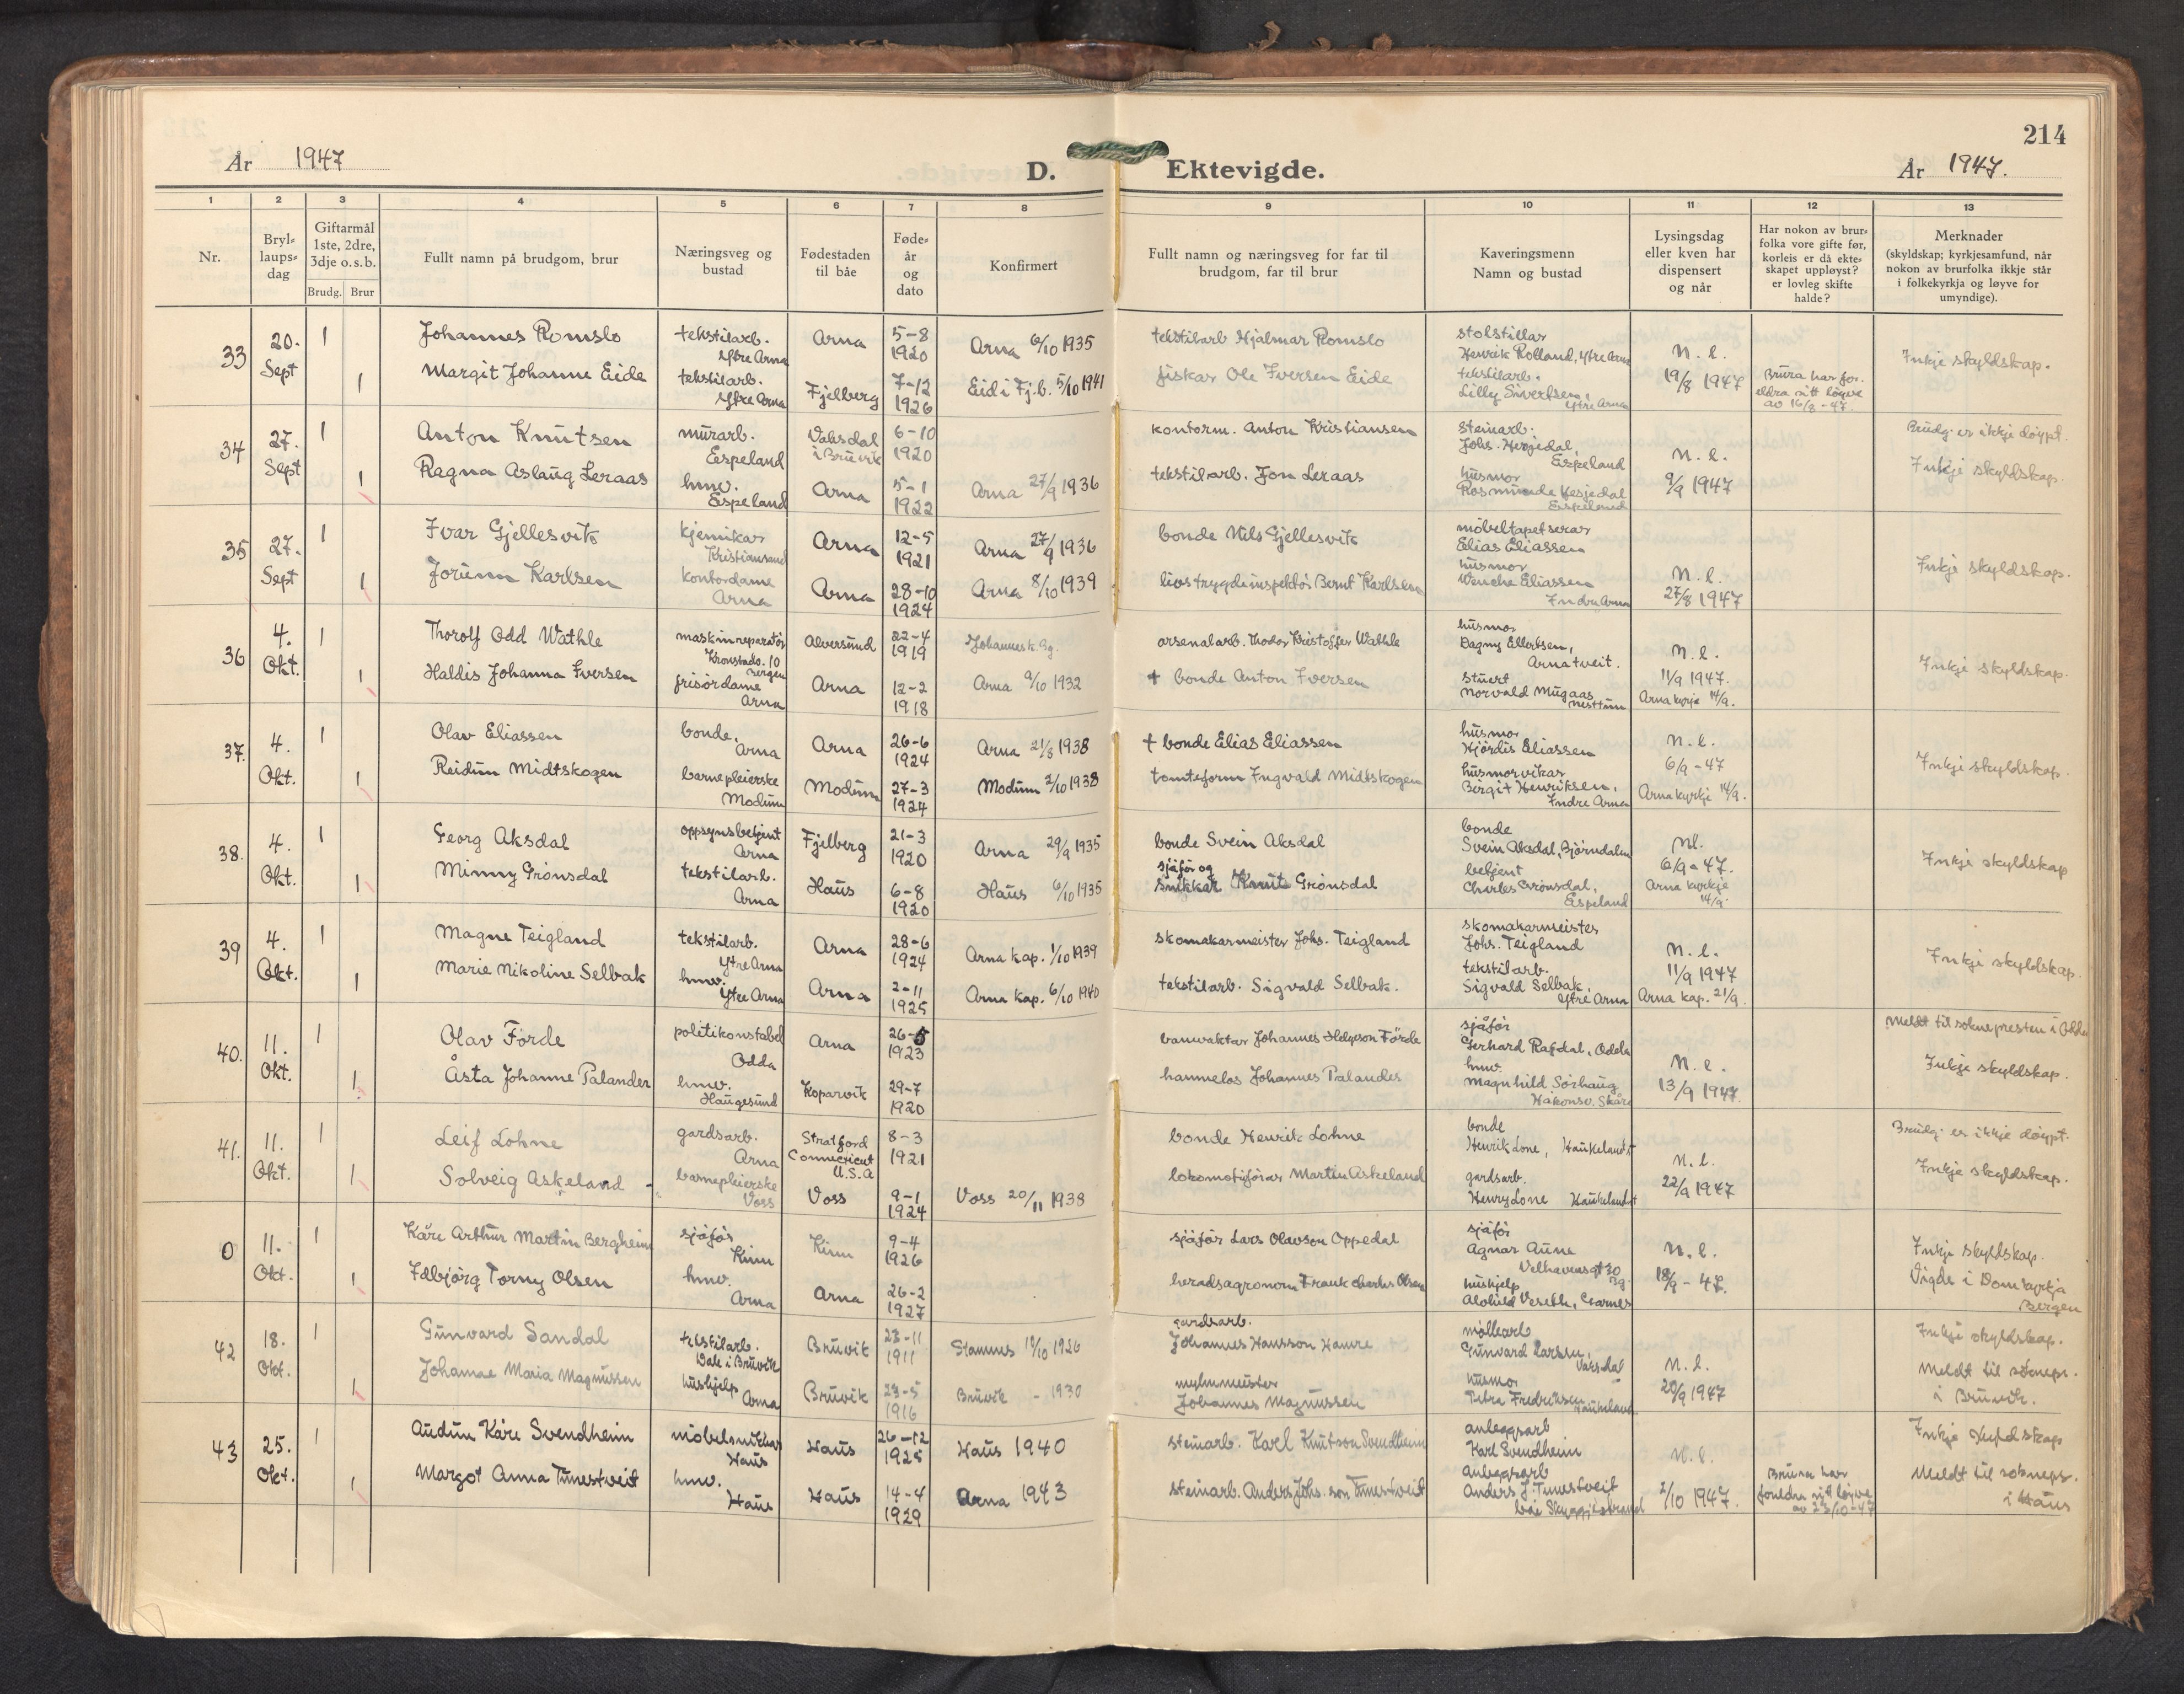 214
År 1947 D. Ektevigde. År 1947.
1 2 3 4 5 6 7 8 9 10 11 12 13
Nr.
Bryl-
laups-
dag
Giftarmål
1ste, 2dre,
3dje o. s. b.
Brudg. Brur
Fullt namn på brudgom, brur
Næringsveg og
bustad
Fødestaden
til båe
Føde-
år
og
dato
Konfirmert
Fullt namn og næringsveg for far til
brudgom, far til brur
Kaveringsmenn
Namn og bustad
Lysingsdag
eller kven har
dispensert
og når
Har nokon av brur-
folka vore gifte før,
korleis er då ekte-
skapet uppløyst?
er lovleg skifte
halde?
Merknader
(skyldskap; kyrkjesamfund, når
nokon av brurfolka ikkje står
i folkekyrkja og løyve for
umyndige).
33
20.
Sept
1
Johannes Romslo
tekstilarb.
Ytre Arna
Arna
5-8
1920
Arna 6/10 1935
tekstilarb Hjalmar Romslo
stolstillar
Henrik Rolland, Ytre Arna
1
Margit Johanne Eide
tekstilarb.
Ytre Arna
Fjelberg
7-12
1926
Eid i Fj.b. 5/10 1941
fiskar Ole Iversen Eide
tekstilarb.
Lilly Sivertsen,
Ytre Arna
n. l.
19/8 1947
Brura har for-
eldra sitt løyve
av 16/8 - 47.
Inkje skyldskap.
34
27.
Sept
1
Anton Knutsen
murarb.
Espeland
Vaksdal
i Bruvik
6-10
1920
kontorm. Anton Kristiansen
steinarb.
Johs. Herjedal,
Espeland
1
Ragna Aslaug Leraas
hmv.
Espeland
Arna
5-1
1922
Arna 27/9 1936
tekstilarb. Jon Leraas
husmor
Rosmunde Hesjedal
Espeland
n. l.
9/9 1947
Brudg. er ikkje døypt.
Inkje skyldskap.
35
27.
Sept
1
Ivar Gjellesvik
kjemikar
Kristiansand
Arna
12-5
1921
Arna 27/9 1936
bonde Nils Gjellesvik
möbeltapetserar
Elias Eliassen
1
Jorunn Karlsen
kontordame
Arna
Arna
28-10
1924
Arna 8/10 1939
livstrygdeinspektör Bernt Karlsen
husmor
Wenche Eliassen
Indre Arna
n. l.
27/8 1947
Inkje skyldskap.
36
4.
Okt.
1
Thorolf Odd Wathle
maskinreparatör
Kronstadv. 10
Bergen
Alversund
22-4
1919
Johannesk. Bg.
arsenalarb. Thodor Kristoffer Wathle
husmor
Dagny Ellertsen,
Arnatveit.
1
Haldis Johanna Iversen
frisördame
Arna
Arna
12-2
1918
Arna 9/10 1932
+ bonde Anton Iversen
stuert
Norvald Mugaas
Nesttun
n. l.
11/9 1947.
Arna kyrje 14/9.
Inkje skyldskap.
37.
4.
Okt.
1
Olav Eliassen
bonde.
Arna
Arna
26-6
1924
Arna 21/8 1938
+ bonde Elias Eliassen
husmor
Hjördis Eliassen
1
Reidun Midtskogen
barnepleierske
Modum
Modum
27-3
1924
Modum 2/10 1938
tomteform Ingvald Midtskogen
husmorvikar
Birgit Henriksen,
Indre Arna
n. l.
6/9 - 47
Arna kyrkje 14/9.
Inkje skyldskap.
38.
4.
Okt.
1
Georg Aksdal
oppsynsbetjent
Arna
Fjelberg
21-3
1920
Arna 29/9 1935
bonde Svein Aksdal
bonde
Svein Aksdal, Björndalen
1
Minny Grönsdal
tekstilarb.
Arna
Haus
6-8
1920
Haus 6/10 1935
sjåfør og
snikkar Knut Grönsdal
betjent
Charles Grönsdal,
Espeland
nl.
6/9 - 47.
Arna kyrkje
14/9.
Inkje skyldskap
39
4.
Okt.
1
Magne Teigland
tekstilarb.
Ytre Arna
Arna
28-6
1924
Arna kap. 1/10 1939
skomakarmeister Johs. Teigland
skomakarmeister
Johs. Teigland
1
Marie Nikoline Selbak
hmv.
Ytre Arna
Arna
2-11
1925
Arna kap. 6/10 1940
tekstilarb. Sigvald Selbak.
tekstilarb.
Sigvald Selbak,
Ytre Arna
n. l.
11/9 1947
Arna kap. 21/9.
Inkje skyldskap.
40.
11.
Okt.
1
Olav Förde
politikonstabel
Odda
Arna
26-5
1923
banevaktar Johannes Helgeson Förde
sjåför
Gerhard Rafdal, Odda
1
Åsta Johanne Palander
hmv.
Haugesund
Koparvik
29-7
1920
havnelos Johannes Palander
hmv.
Magnhild Sörhaug
Håkonsv. Skåre
n. l.
13/9 1947.
Meldt til soknepresten i Odda
Inkje skyldskap.
41.
11.
Okt.
1
Leif Lohne
gardsarb.
Arna
Stratford
Connecticut
U.S.A
8-3
1921
bonde Henrik Lohne
bonde
Henrik Lone, Haukeland st
1
Solveig Askeland
barnepleierske
Voss
Voss
9-1
1924
Voss 20/11 1938
lokomotivförar Martin Askeland
gardsarb.
Henry Lone Haukeland st
n. l.
22/9 1947
Brudg. er ikkje döypt.
Inkje skyldskap.
0
11.
Okt.
1
Kåre Arthur Martin Bergheim
sjåför
Kinn
Kinn
9-4
1926
sjåför Lars Olavson Oppedal
sjåför
Agnar Aune
Welhavensgt 30
Bg.
1
Idbjörg Torny Olsen
hmv.
Arna
Arna
26-2
1927
heradsagronom Frank Charles Olsen
hushjelp
Alvhild Veseth, Garnes
n. l.
18/9 - 47.
Inkje skyldskap.
Vigde i Domkyrkja
Bergen
42
18.
Okt.
1
Gunvard Sandal
tekstilarb.
Dale i Bruvik
Bruvik
23-11
1911
Stamnes 10/10 1926
gardsarb.
Johannes Hansson Hamre
möllearb
Gunvard Larsen,
Vaksdal
1
Johanne Maria Magnussen
hushjelp
Arna
Bruvik
23-5
1916
Bruvik - 1930
Johannes Magnussen
husmor
Petra Fredriksen
Haukeland
n. l.
20/9 1947
Inkje skyldskap.
Meldt til soknepr.
i Bruvik.
43
25.
Okt.
1
Audun Kåre Svendheim
möbelsnikkar
Haus
Haus
26-12
1925
Haus 1940
steinarb. Karl Knutson Svendheim
anleggsarb
Karl Svendheim
1
Margot Anna Tunestveit
hmv.
Haus
Haus
14-4
1929
Arna 1943
steinarb. Anders Johs. son Tunestveit
anleggsarb
Anders J. Tunestveit
n. l.
2/10 1947.
Brura har
foreldra sitt løyve
av 23/10 - 47
Inkje skyldskap
Meldt til soknepr.
i Haus